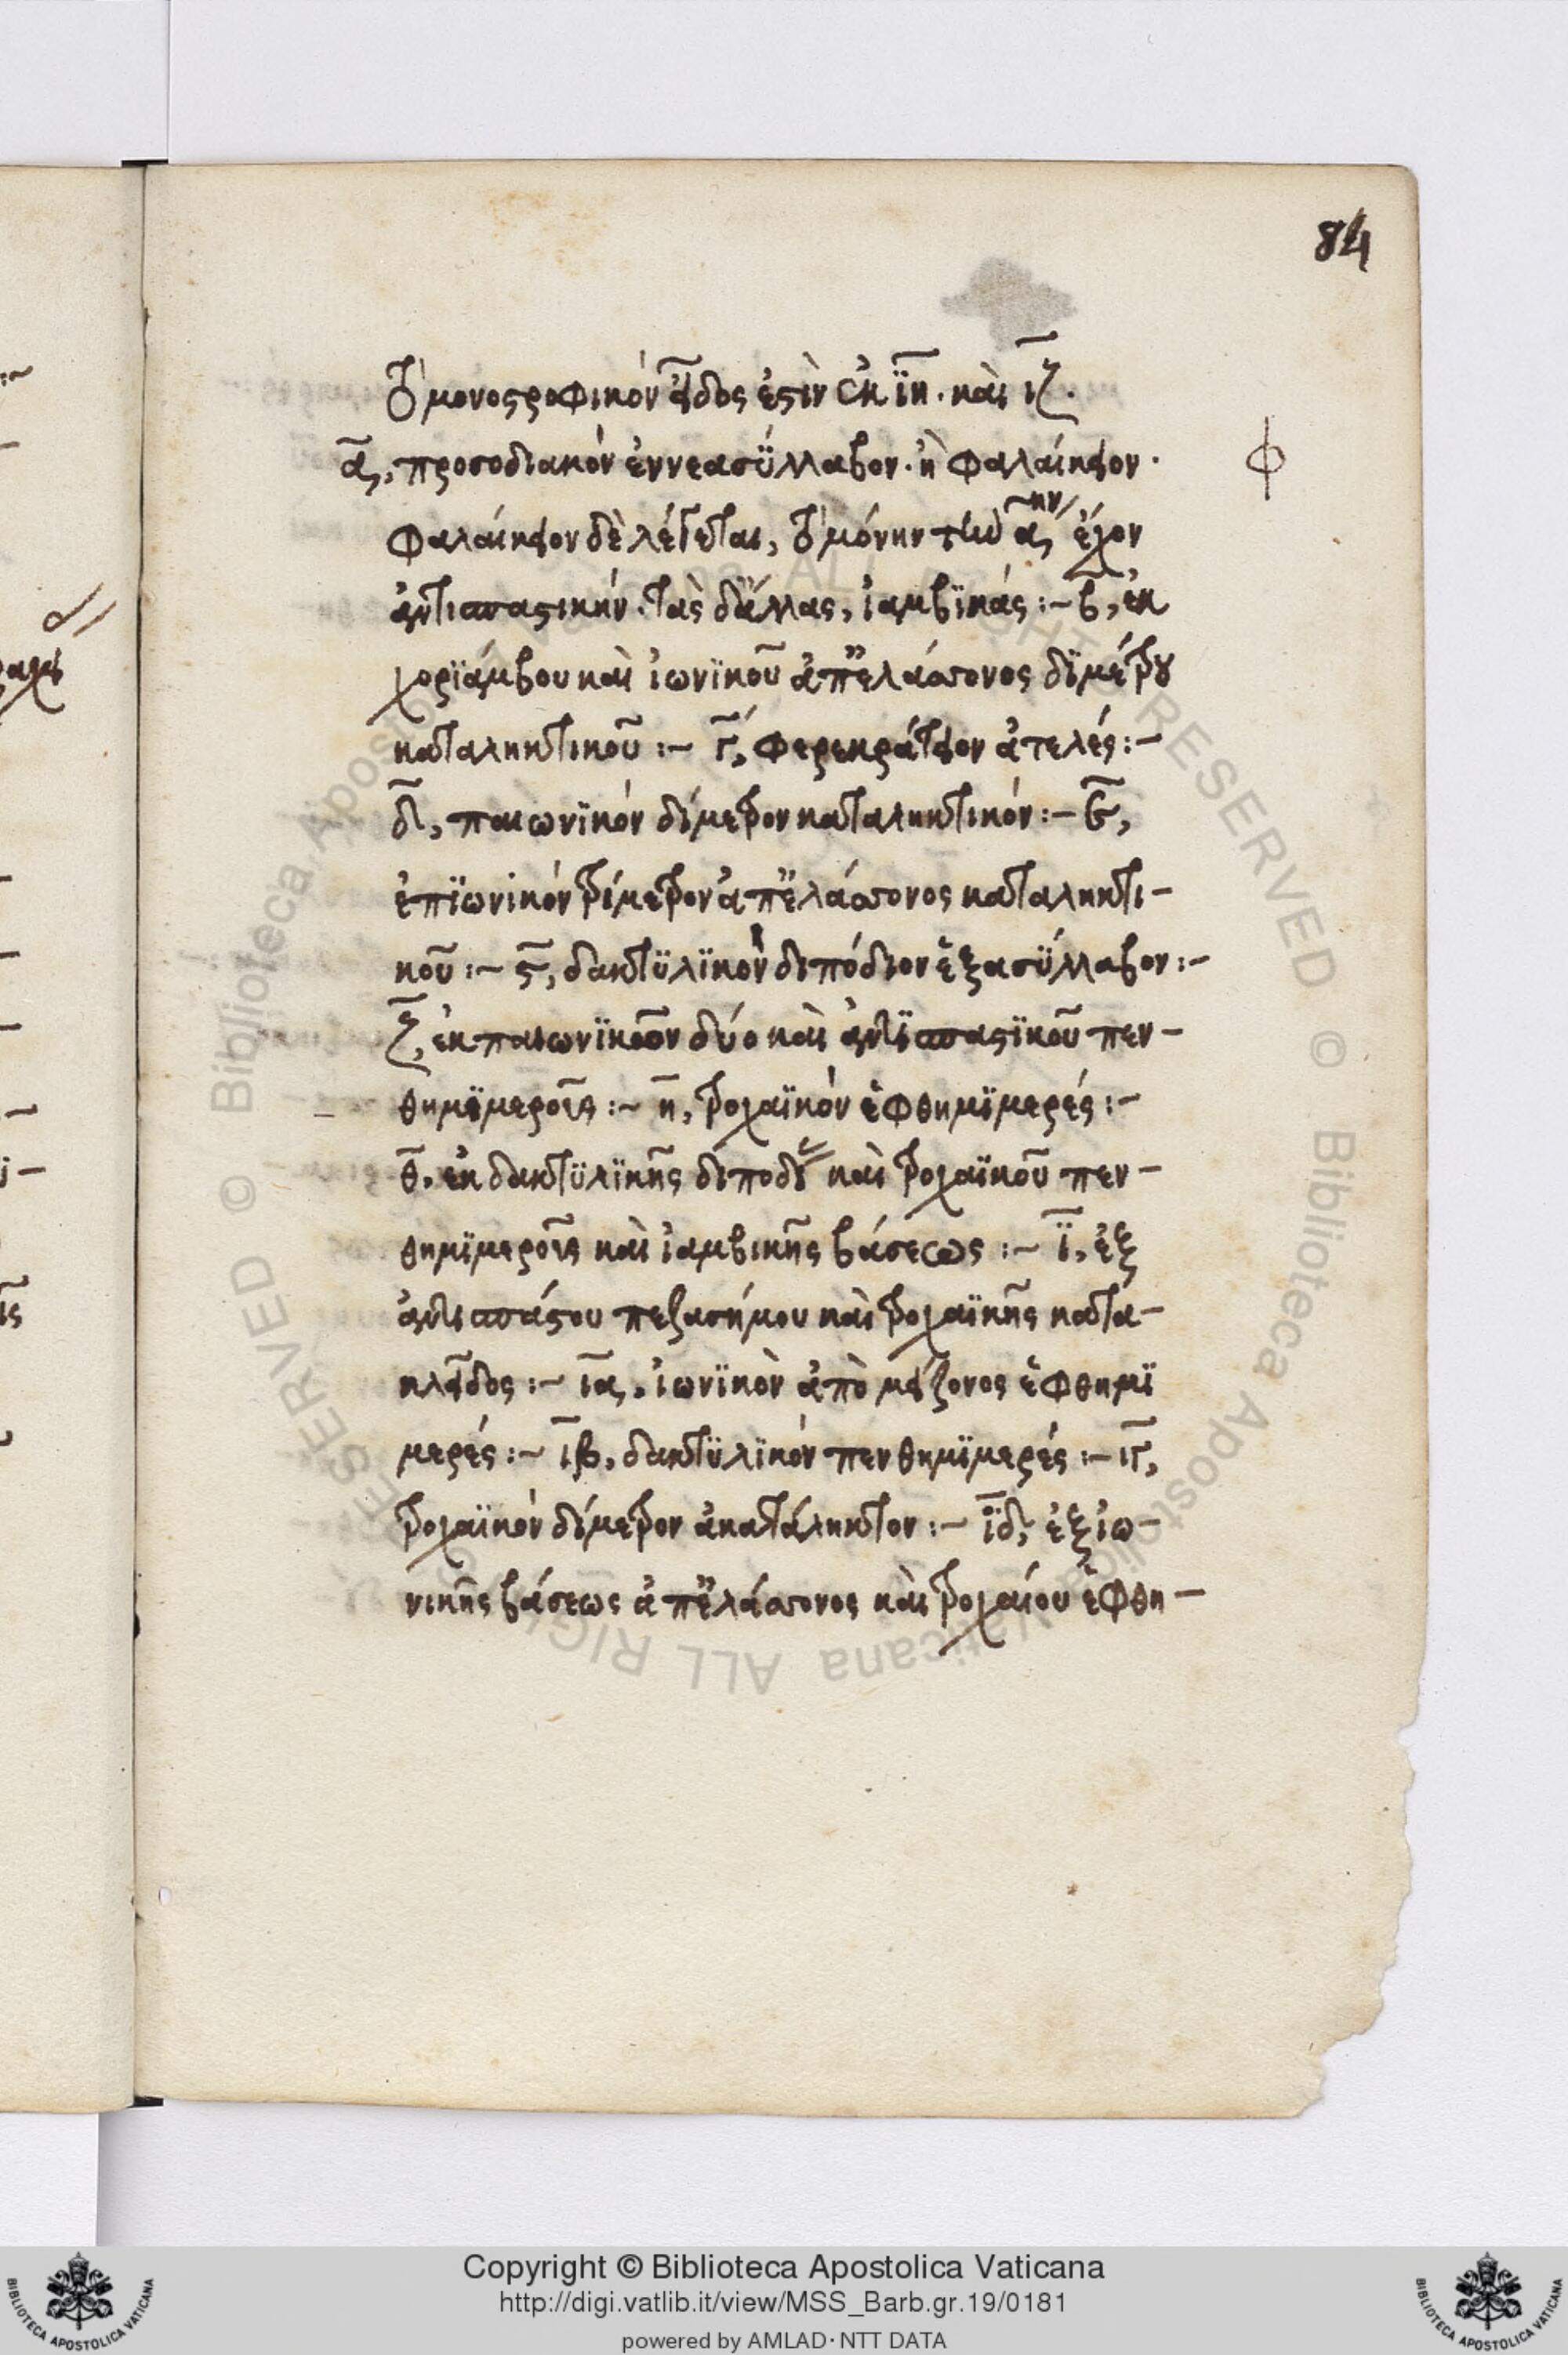 84
Τὸ μονοστροφικὸν εἶδος ἐστὶν ἐκ ιη. καὶ ιζ.
α, προσοδιακὸν ἐννεασύλλαβον. ἢ φαλαίκειον.
φ
φαλαίκειον δὲ λέγεται, τὸ μόνην τὴν αην ἔχον
ἀντισπαστικήν. τὰς δ' ἄλλας, ἰαμβικάς :~ β, ἐκ
χοριάμβου καὶ ἰωνικοῦ ἀπ' ἐλάσσονος διμέτρου
καταληκτικοῦ :~ γ, φερεκράτειον ἀτελές :~
δ, παιωνικὸν δίμετρον καταληκτικόν :~ ε,
ἐπιωνικὸν τρίμετρον ἀπ' ἐλάσσονος καταληκτι-
κοῦ :~ ς, δακτυλικὸν διπόδιον ἑξασύλλαβον :~
ζ, ἐκ παιωνικῶν δύο καὶ ἀντισπαστικοῦ πεν-
θημιμεροῦς :~ η, τροχαϊκὸν ἑφθημιμερές :~
θ. ἐκ δακτυλικῆς διποδίας καὶ τροχαϊκοῦ πεν-
θημιμεροῦς καὶ ἰαμβικῆς βάσεως :~ ι, ἐξ
ἀντισπάστου πεζασήμου καὶ τροχαϊκῆς κατα-
κλεῖδος :~ ια, ἰωνικὸν ἀπὸ μείζονος ἑφθημι
μερές :~ ιβ, δακτυλικὸν πενθημιμερές :~ ιγ,
τροχαϊκὸν δίμετρον ἀκατάληκτον :~ ιδ, ἐξ ἰω-
νικῆς βάσεως ἀπ' ἐλάσσονος καὶ τροχαίου ἑφθη-
Copyright © Biblioteca Apostolica Vaticana
http://digi.vatlib.it/view/MSS_Barb.gr.19/0181
powered by AMLAD·NTT DATA
© Biblioteca Apostolica Vaticana ALL RIGHTS RESERVED
BIBLIOTECA APOSTOLICA VATICANA
BIBLIOTECA APOSTOLICA VATICANA